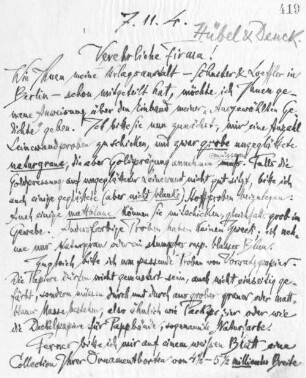 419
7. 11. 4.
Hübel & Denck.
Verehrliche Firma!
Wie Ihnen meine Verlagsanstalt – Schuster & Loeffler in
Berlin – schon mitgeteilt hat, möchte ich Ihnen ge-
naue Anweisung über den Einband meiner „Ausgewählten Ge-
dichte" geben. Ich bitte Sie nun zunächst, mir eine Anzahl
Leinwandproben zu schicken, und zwar grobe ungebleichte
naturgraue, die aber Goldpressung annehmen muß. Falls die
Goldpressung auf ungebleichter Leinwand nicht gut sitzt, bitte ich
auch einige geglättete (aber nicht blanke) Stoffproben
Auch einige mattblaue können Sie mitschicken, gleichfalls grob im
Gewebe. Andersfarbige Proben haben keinen Zweck; ich neh-
me nur Naturgrau oder ein stumpfes resp. blasses Blau.
Zugleich bitte ich um passende Proben von Vorsatzpapier.
Die Papiere dürfen nicht gemustert sein, auch nicht einseitig ge-
färbt, sondern müssen durch und durch aus grober grauer oder matt-
blauer Masse bestehen, also ähnlich wie Packpapier oder wie
die Deckelpapiere für Pappbände, sogenannte Naturfarbe.
Ferner bitte ich mir auf einem weißen Blatt eine
Collection Ihrer Ornamentborten von 4½–5½ millimeter Breite